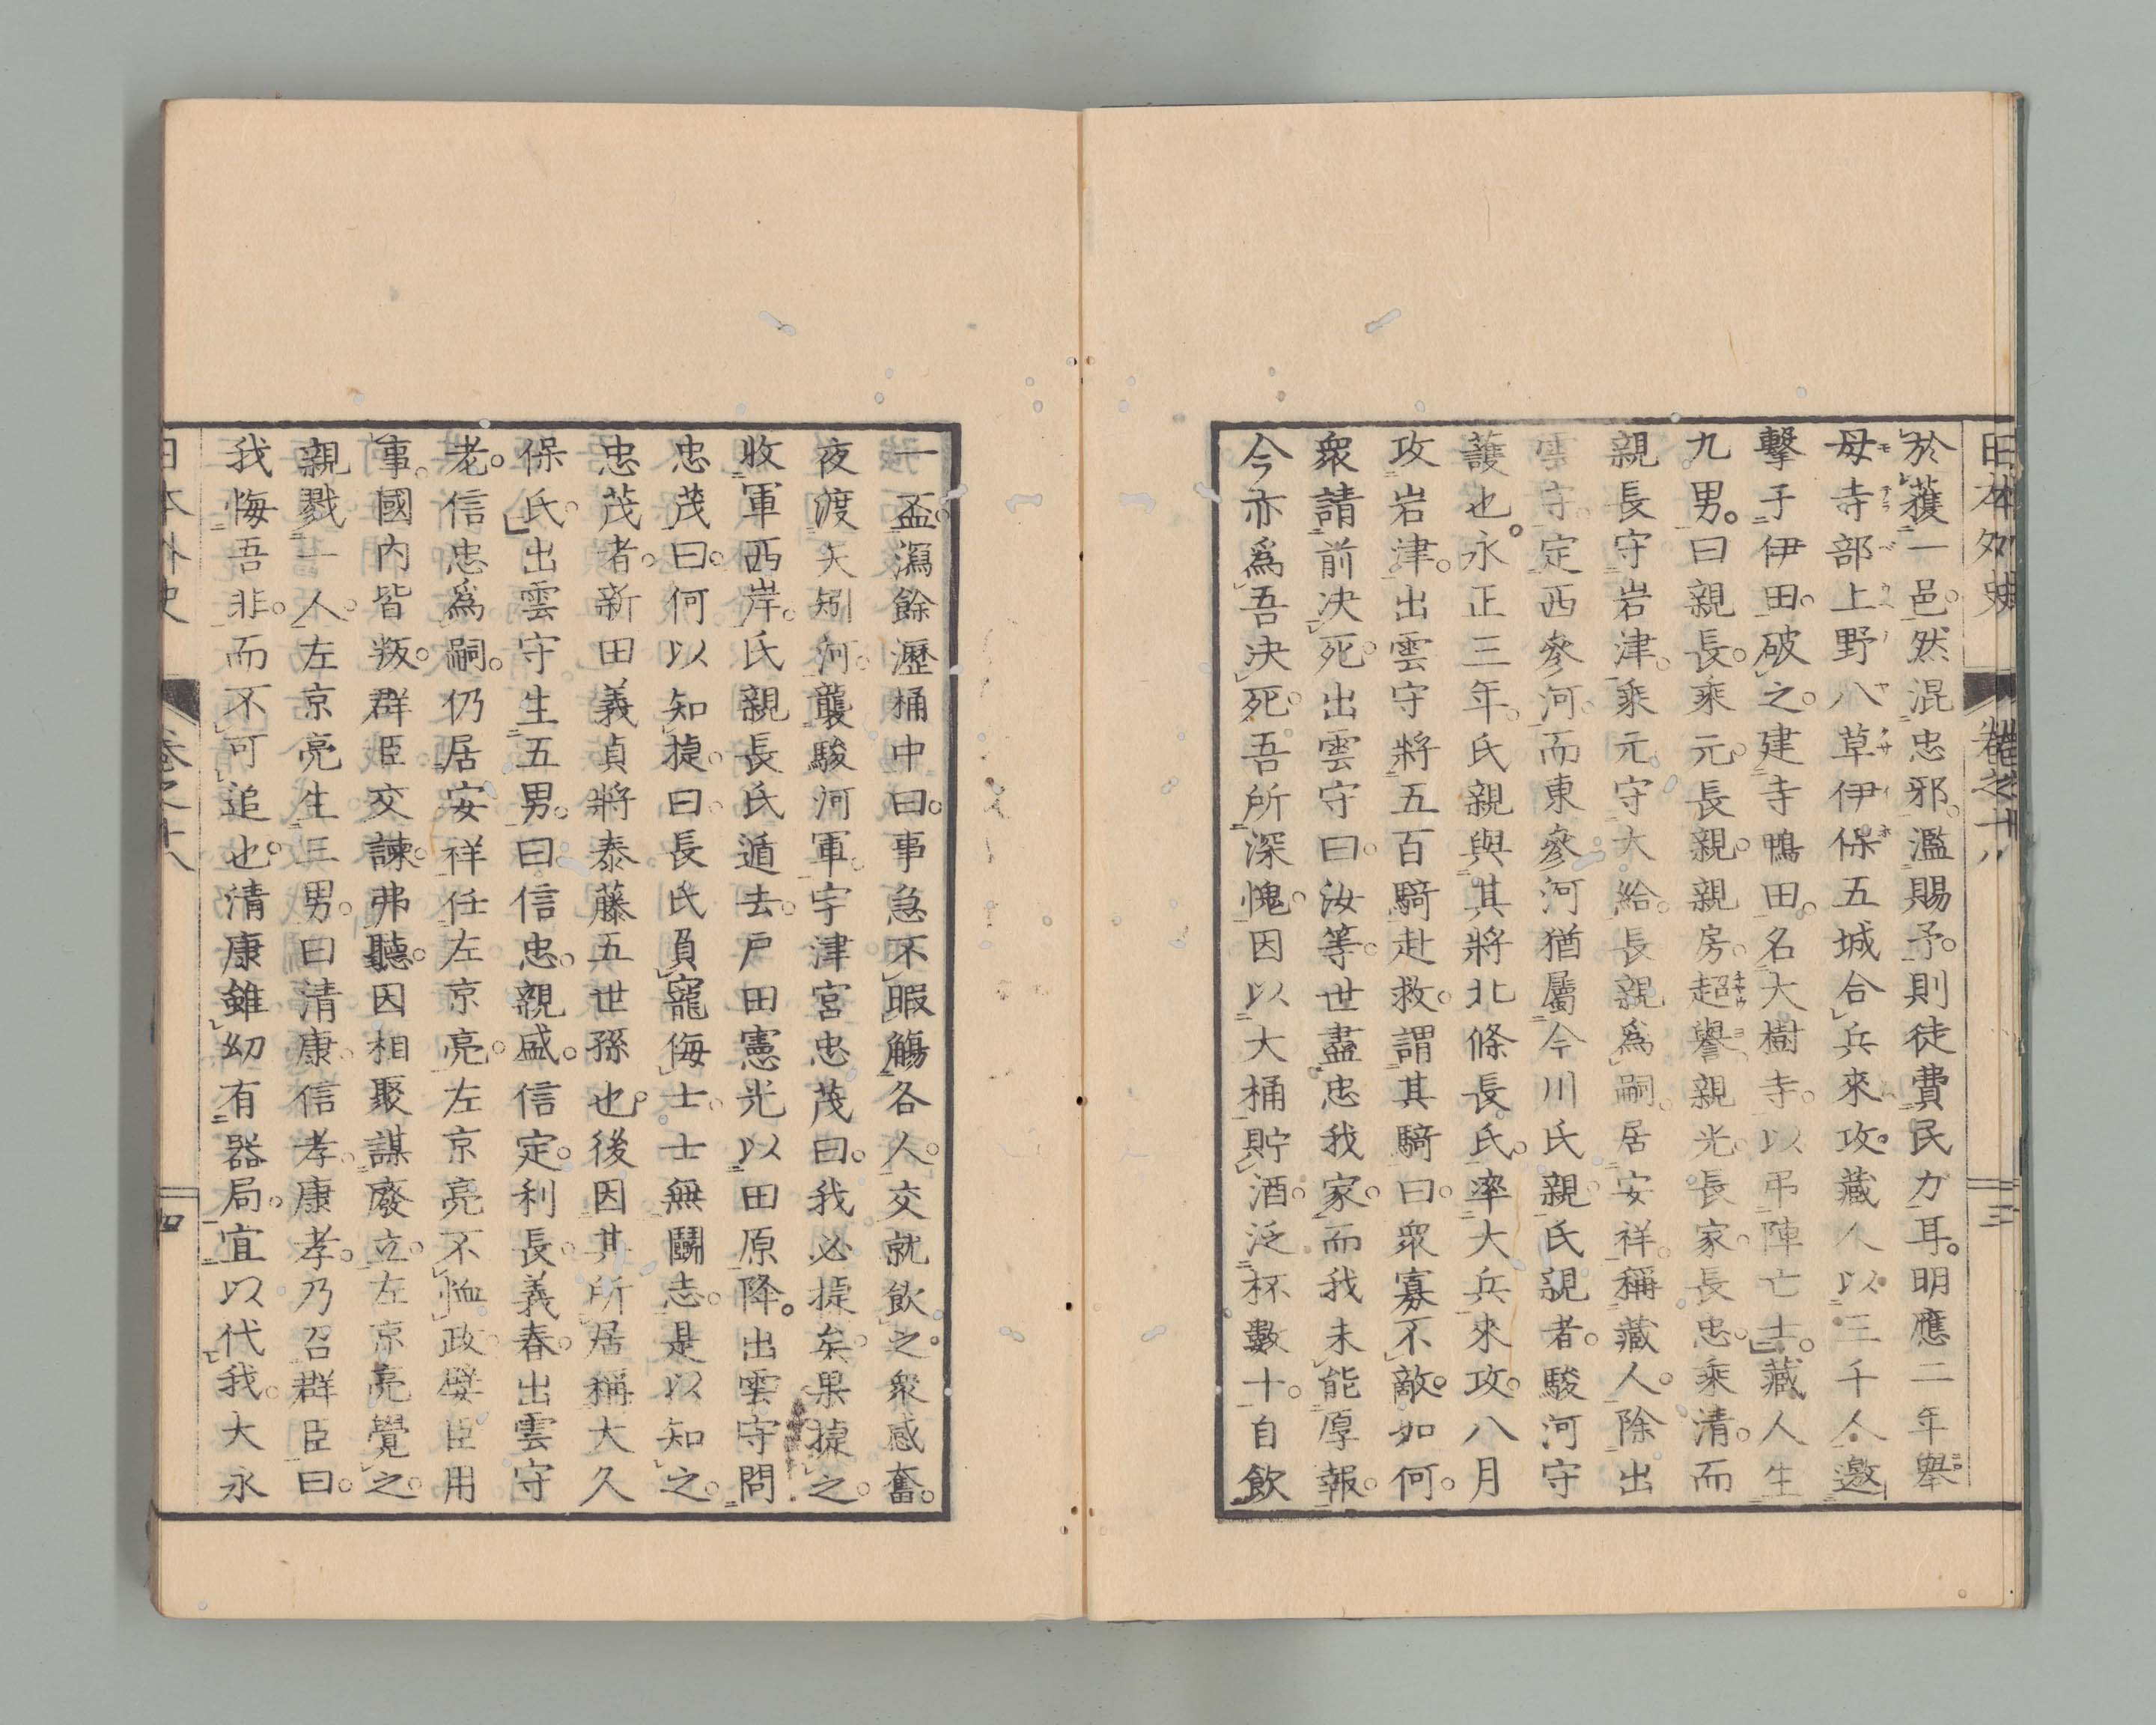 日本外史 卷之十八 三
於獲一邑。然混忠邪。濫賜予。則徒費民力耳。明應二年舉
母寺部上野八草伊保五城合兵來攻。藏人以三千人邀
擊于伊田。破之。建寺鴨田。名大樹寺。以弔陣亡士。藏人生
九男。曰親長。乘元。長親。親房。超譽。親光。長家。長忠。乘清。而
親長守岩津。乘元守大給。長親爲嗣。居安祥。稱藏人。除出
雲守。定西參河。而東參河猶屬今川氏親。氏親者。駿河守
護也。永正三年。氏親與其將北條長氏。率大兵來攻。八月
攻岩津。出雲守將五百騎赴救。謂其騎曰。衆寡不敵。如何。
衆請前决死。出雲守曰。汝等。世盡忠我家。而我未能厚報。
今亦爲吾决死。吾所深愧。因以大桶貯酒。泛杯數十。自飲
一盃。瀉餘瀝桶中曰。事急不暇觴各人。交就飲之。衆感奮。
夜渡矢矧河。襲駿河軍。宇津宮忠茂曰。我必捷矣。果捷之。
收軍西岸。氏親長氏遁去。戸田憲光以田原降。出雲守問
忠茂。曰。何以知捷。曰。長氏負寵侮士。士無鬭志。是以知之。
忠茂者。新田義貞將泰藤五世孫也。後因其所居稱大久
保氏。出雲守生五男。曰信忠。親盛。信定。利長。義春。出雲守
老。信忠爲嗣。仍居安祥任左京亮。左京亮不恤政。嬖臣用
事。國内皆叛。群臣交諫。弗聽。因相聚謀廢立。左京亮覺之。
親戮一人。左京亮生三男。曰清康。信孝。康孝。乃召群臣曰。
我悔吾非。而不可追也。清康雖幼有器局。宜以代我。大永
日本外史 卷之十八 四